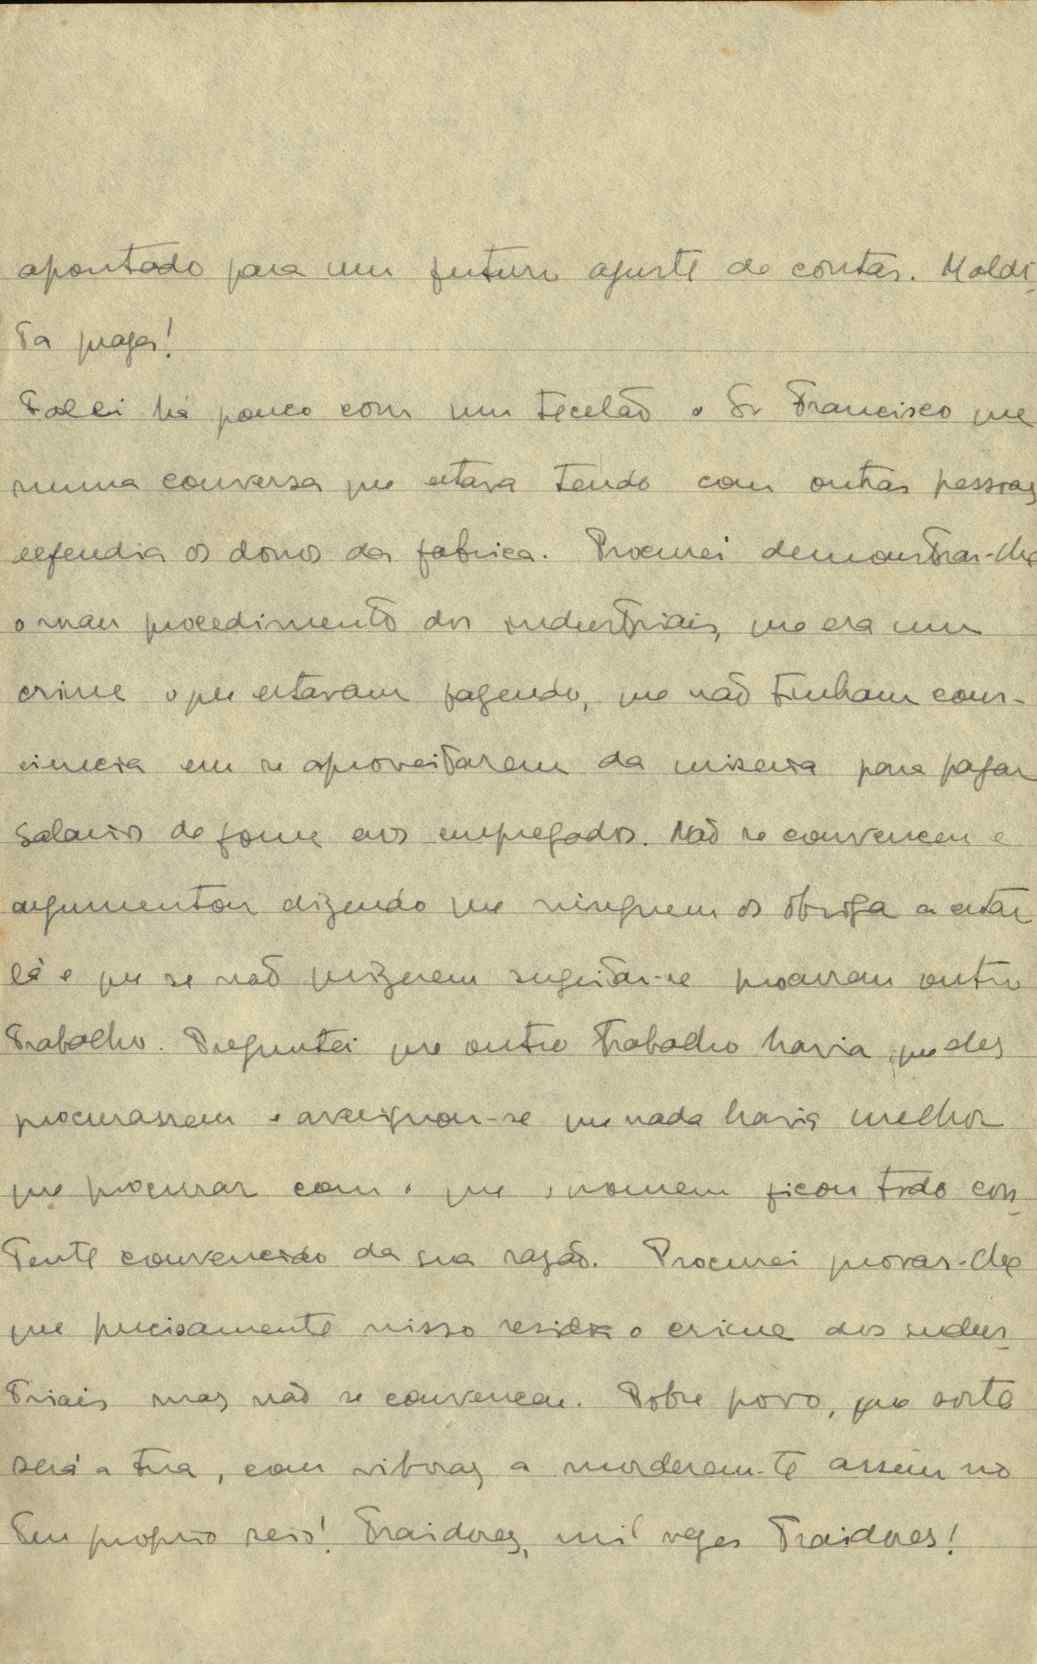 apontado para um futuro ajuste de contas. Maldi-
ta praga!
Falei há pouco com um tecelão o Sr Francisco que
numa conversa que estava tendo com outras pessoas
defendia os donos da fabrica. Procurei demonstrar-lhe
o mau procedimento dos industriais, que era um
crime o que estavam fazendo, que não tinham cons-
ciencia em se aproveitarem da miseria para pagar
salarios de fome aos empregados. Não se convenceu e
argumentou dizendo que ninguem os obriga a estar
lá e que se não quizerem sugeitar-se procuram outro
trabalho. Preguntei que outro trabalho havia que eles
procurassem e averiguou-se que nada havia melhor
que procurar com o que o homem ficou todo con-
tente convencido da sua razão. Procurei provar-lhe
que precisamente nisso reside o crime dos indus-
triais mas não se convenceu. Pobre povo, que sorte
será a tua, com viboras a morderem-te assim no
teu proprio seio! Traidores, mil vezes traidores!